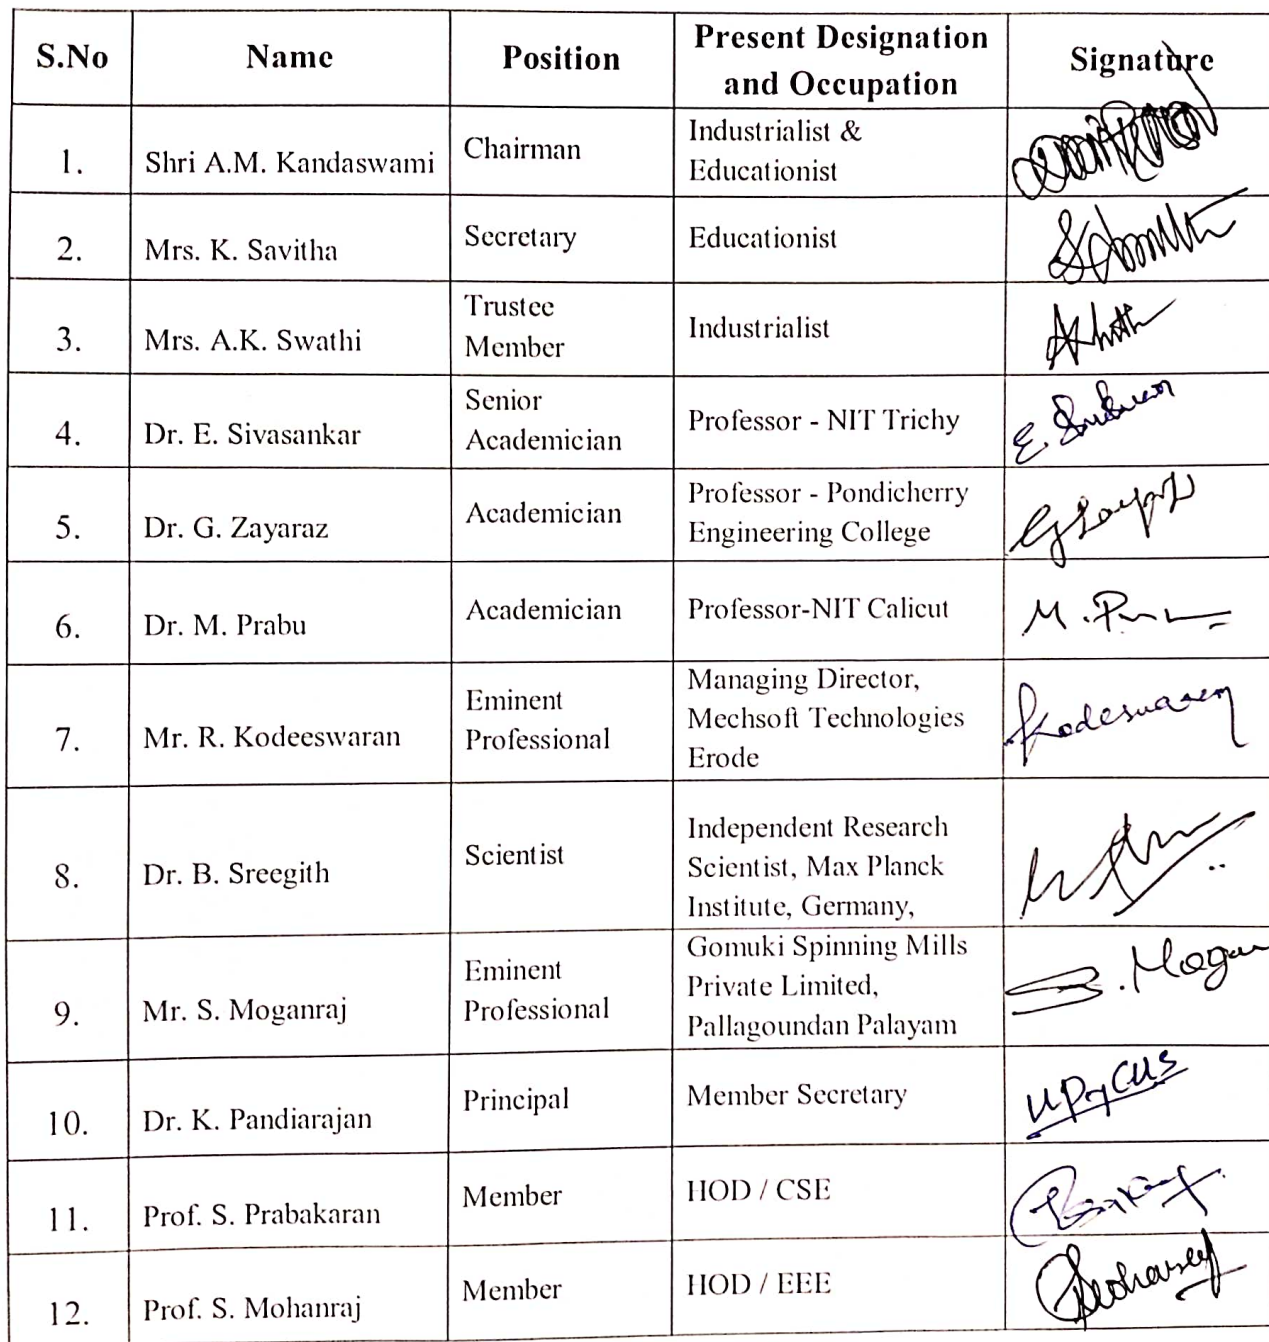 S.No Name Position Present Designation and Occupation Signature
1. Shri A.M. Kandaswami Chairman Industrialist & Educationist
2. Mrs. K. Savitha Secretary Educationist
3. Mrs. A.K. Swathi Trustee Member Industrialist
4. Dr. E. Sivasankar Senior Academician Professor - NIT Trichy
5. Dr. G. Zayaraz Academician Professor - Pondicherry Engineering College
6. Dr. M. Prabu Academician Professor-NIT Calicut
7. Mr. R. Kodeeswaran Eminent Professional Managing Director, Mechsoft Technologies Erode
8. Dr. B. Sreegith Scientist Independent Research Scientist, Max Planck Institute, Germany,
9. Mr. S. Moganraj Eminent Professional Gomuki Spinning Mills Private Limited, Pallagoundan Palayam
10. Dr. K. Pandiarajan Principal Member Secretary
11. Prof. S. Prabakaran Member HOD / CSE
12. Prof. S. Mohanraj Member HOD / EEE